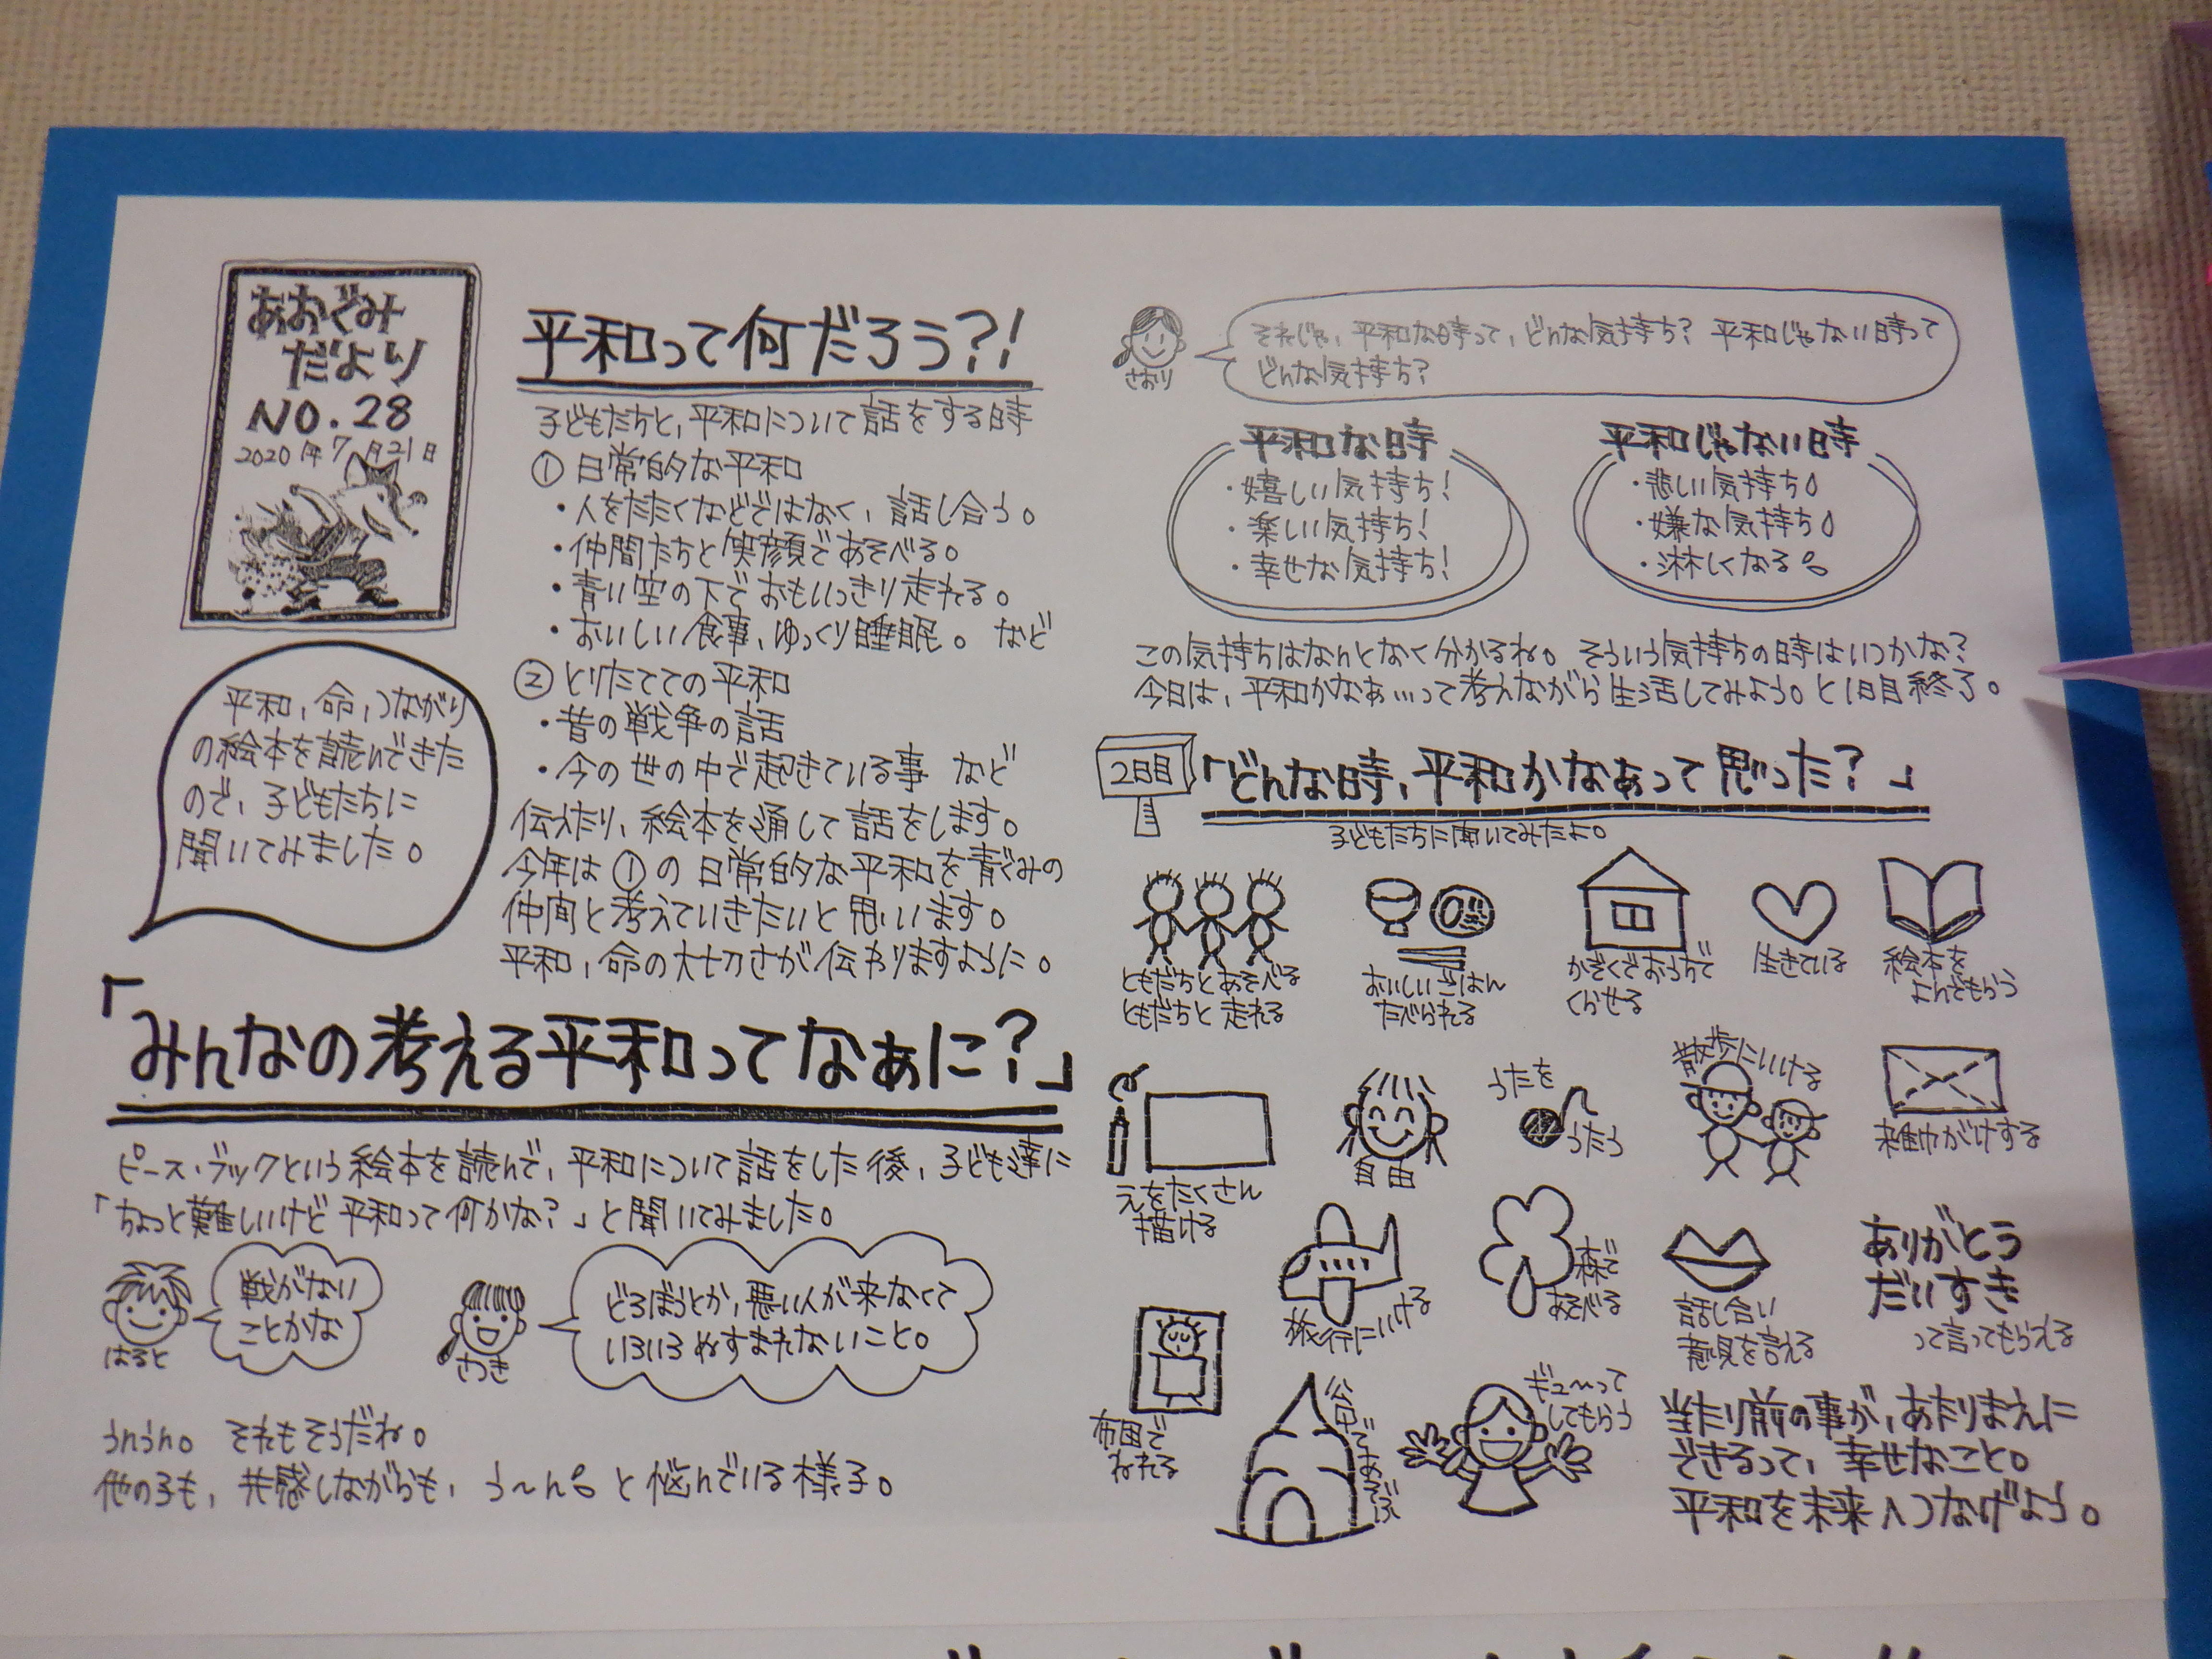 あおぐみ
だより
NO.28
2020年7月21日
平和、命、つながり
の絵本を読んできた
ので、子どもたちに
聞いてみました。
平和って何だろう?!
子どもたちと、平和について話をする時
① 日常的な平和
・人をたたくなどではなく、話し合う。
・仲間たちと笑顔であそべる。
・青い空の下でおもいっきり走れる。
・おいしい食事、ゆっくり睡眠。 など
② とりたてての平和
・昔の戦争の話
・今の世の中で起きている事 など
伝えたり、絵本を通して話をします。
今年は①の日常的な平和を青ぐみの
仲間と考えていきたいと思います。
平和、命の大切さが伝わりますように。
「みんなの考える平和ってなぁに?」
ピース・ブックという絵本を読んで、平和について話をした後、子ども達に
「ちょっと難しいけど平和って何かな?」と聞いてみました。
はると
戦がない
ことかな
さつき
どろぼうとか、悪い人が来なくて
いろいろぬすまれないこと。
うんうん。それもそうだね。
他の子も、共感しながらも、う〜んと悩んでいる様子。
さおり
それじゃ、平和な時って、どんな気持ち? 平和じゃない時って
どんな気持ち?
平和な時
・嬉しい気持ち!
・楽しい気持ち!
・幸せな気持ち!
平和じゃない時
・悲しい気持ち
・嫌な気持ち
・淋しくなる
この気持ちはなんとなく分かるね。そういう気持ちの時はいつかな?
今日は、平和かなぁ…って考えながら生活してみよう。と1日目終了。
2日目
「どんな時、平和かなぁって思った?」
子どもたちに聞いてみたよ。
ともだちとあそべる
ともだちと走れる
おいしいごはん
たべられる
かぞくでおうちで
くらせる
生きている
絵本を
よんでもらう
えをたくさん
描ける
自由
うたを
うたう
散歩にいける
雑巾がけする
旅行にいける
森で
あそべる
話し合い
意見を言える
ありがとう
だいすき
って言ってもらえる
布団で
ねれる
公園であそぶ
ギュ〜って
してもらう
当たり前の事が、あたりまえに
できるって、幸せなこと。
平和を未来へつなげよう。